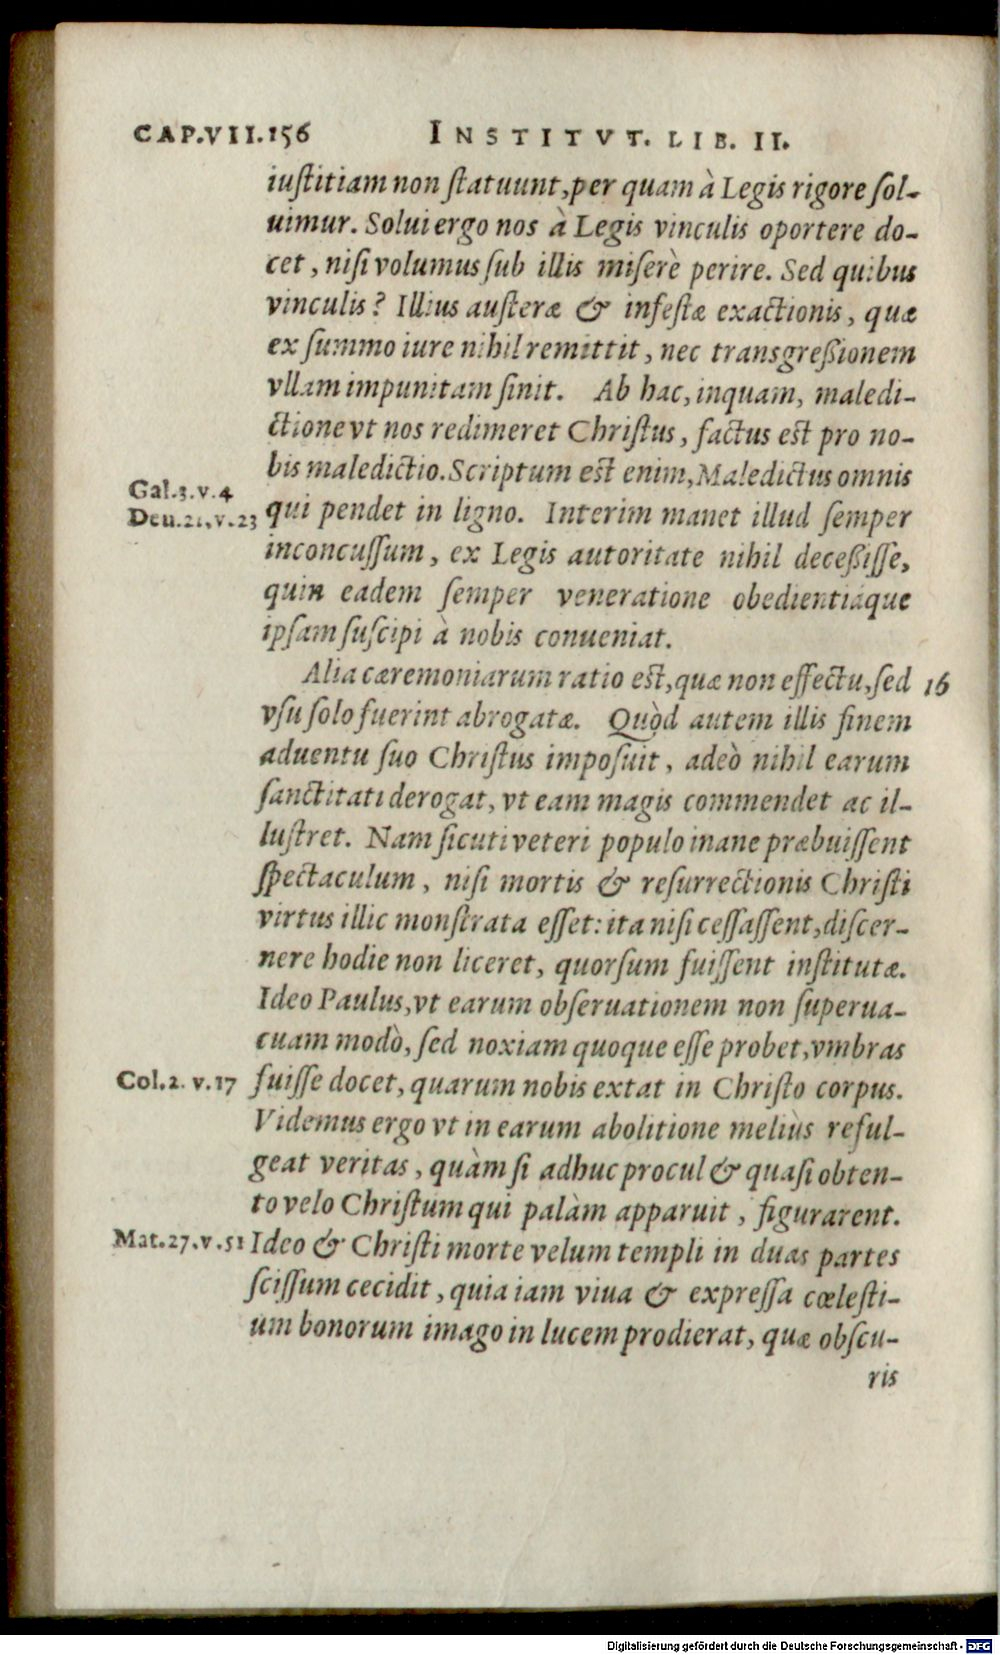 CAP.VII.156 INSTITVT. LIB. II.
iustitiam non statuunt, per quam à Legis rigore sol-
uimur. Solui ergo nos à Legis vinculis oportere do-
cet, nisi volumus sub illis miserè perire. Sed quibus
vinculis? Illius austeræ & infestæ exactionis, quæ
ex summo iure nihil remittit, nec transgreßionem
vllam impunitam sinit. Ab hac, inquam, maledi-
ctione vt nos redimeret Christus, factus est pro no-
bis maledictio. Scriptum est enim, Maledictus omnis
Gal.3.v.4
Deu.21.v.23 qui pendet in ligno. Interim manet illud semper
inconcussum, ex Legis autoritate nihil deceßisse,
quin eadem semper veneratione obedientiáque
ipsam suscipi à nobis conueniat.
Alia cæremoniarum ratio est, quæ non effectu, sed 16
vsu solo fuerint abrogatæ. Quòd autem illis finem
aduentu suo Christus imposuit, adeò nihil earum
sanctitati derogat, vt eam magis commendet ac il-
lustret. Nam sicuti veteri populo inane præbuissent
spectaculum, nisi mortis & resurrectionis Christi
virtus illic monstrata esset: ita nisi cessassent, discer-
nere hodie non liceret, quorsum fuissent institutæ.
Ideo Paulus, vt earum obseruationem non superua-
cuam modò, sed noxiam quoque esse probet, vmbras
Col.2. v.17 fuisse docet, quarum nobis extat in Christo corpus.
Videmus ergo vt in earum abolitione meliùs reful-
geat veritas, quàm si adhuc procul & quasi obten-
to velo Christum qui palàm apparuit, figurarent.
Mat.27.v.51 Ideo & Christi morte velum templi in duas partes
scissum cecidit, quia iam viua & expressa cœlesti-
um bonorum imago in lucem prodierat, quæ obscu-
ris
Digitalisierung gefördert durch die Deutsche Forschungsgemeinschaft - DFG